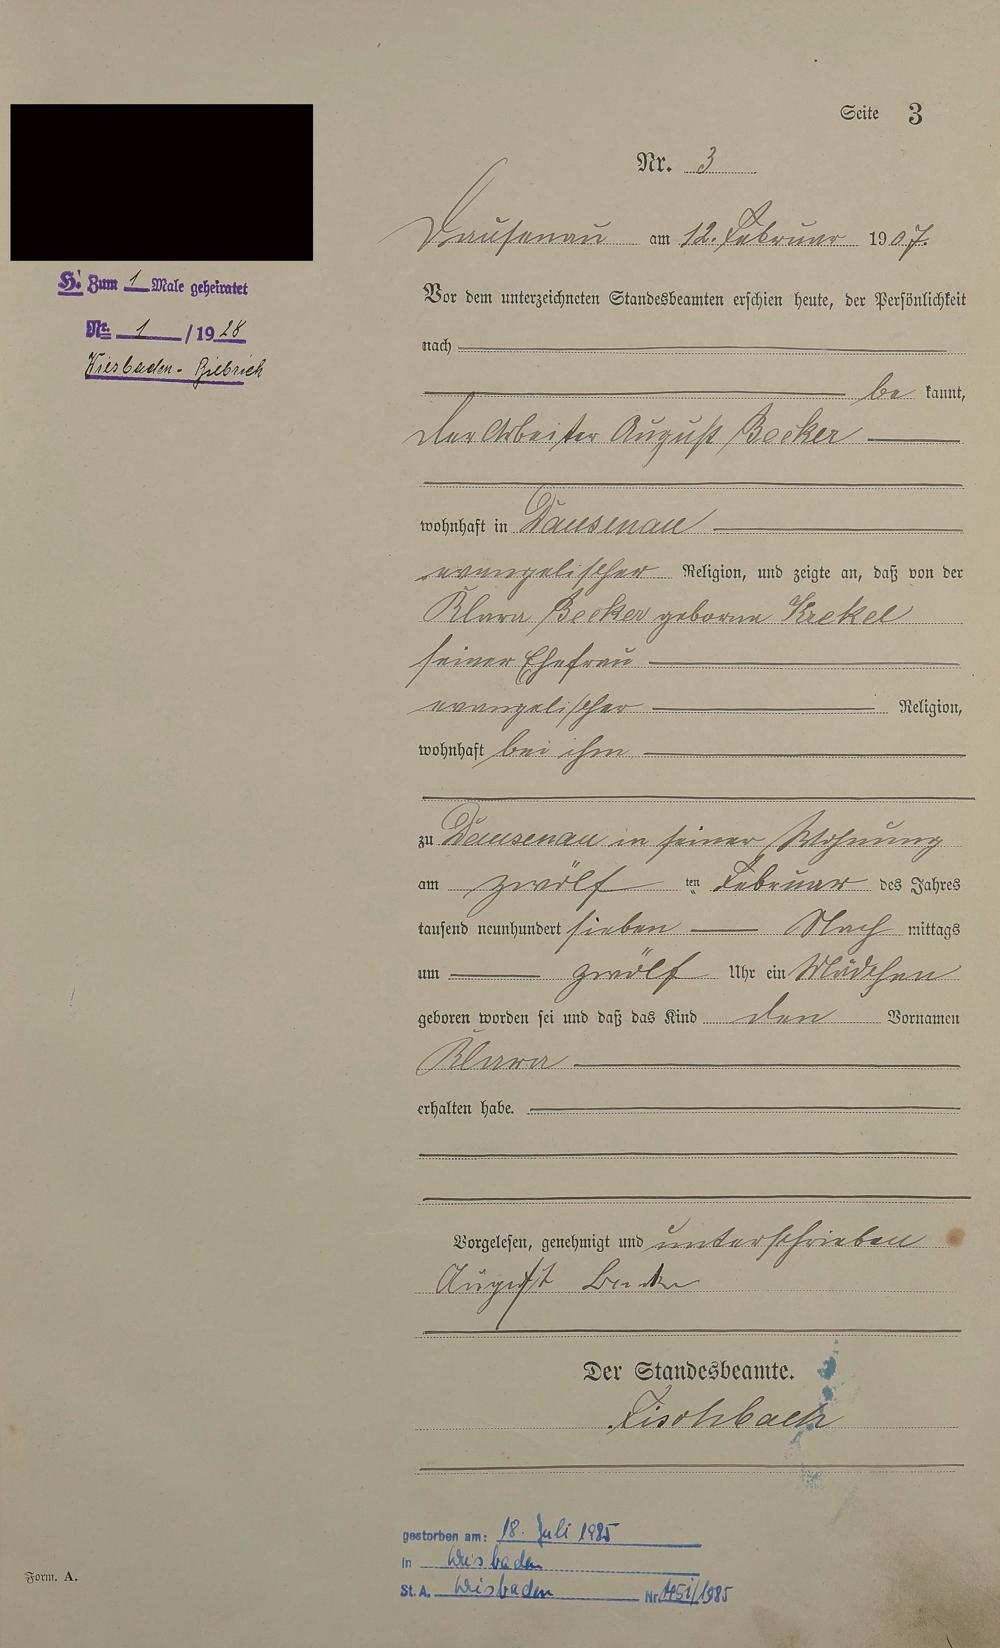 Seite 3
Nr. 3
Dausenau am 12. Februar 1907.
H. Zum 1 Male geheiratet
Nr. 1 / 1928
Wiesbaden - Biebrich
Vor dem unterzeichneten Standesbeamten erschien heute, der Persönlichkeit
nach
be kannt,
der Arbeiter August Becker
wohnhaft in Dausenau
evangelischer Religion, und zeigte an, daß von der
Klara Becker geborne Krekel
seiner Ehefrau
evangelischer Religion,
wohnhaft bei ihm
zu Dausenau in seiner Wohnung
am zwölf ten Februar des Jahres
tausend neunhundert sieben Nach mittags
um zwölf Uhr ein Mädchen
geboren worden sei und daß das Kind den Vornamen
Klara
erhalten habe.
Vorgelesen, genehmigt und unterschrieben
August Becker
Der Standesbeamte.
Fischbach
gestorben am: 18. Juli 1985
in Wiesbaden
St. A. Wiesbaden Nr. /1985
Form. A.